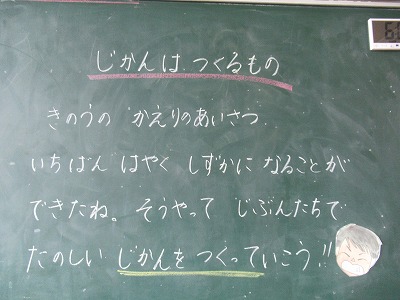 じかんは つくるもの
きのうの かえりのあいさつ
いちばん はやく しずかに なることが
できたね。そうやって じぶんたちで
たのしい じかんを つくっていこう!!